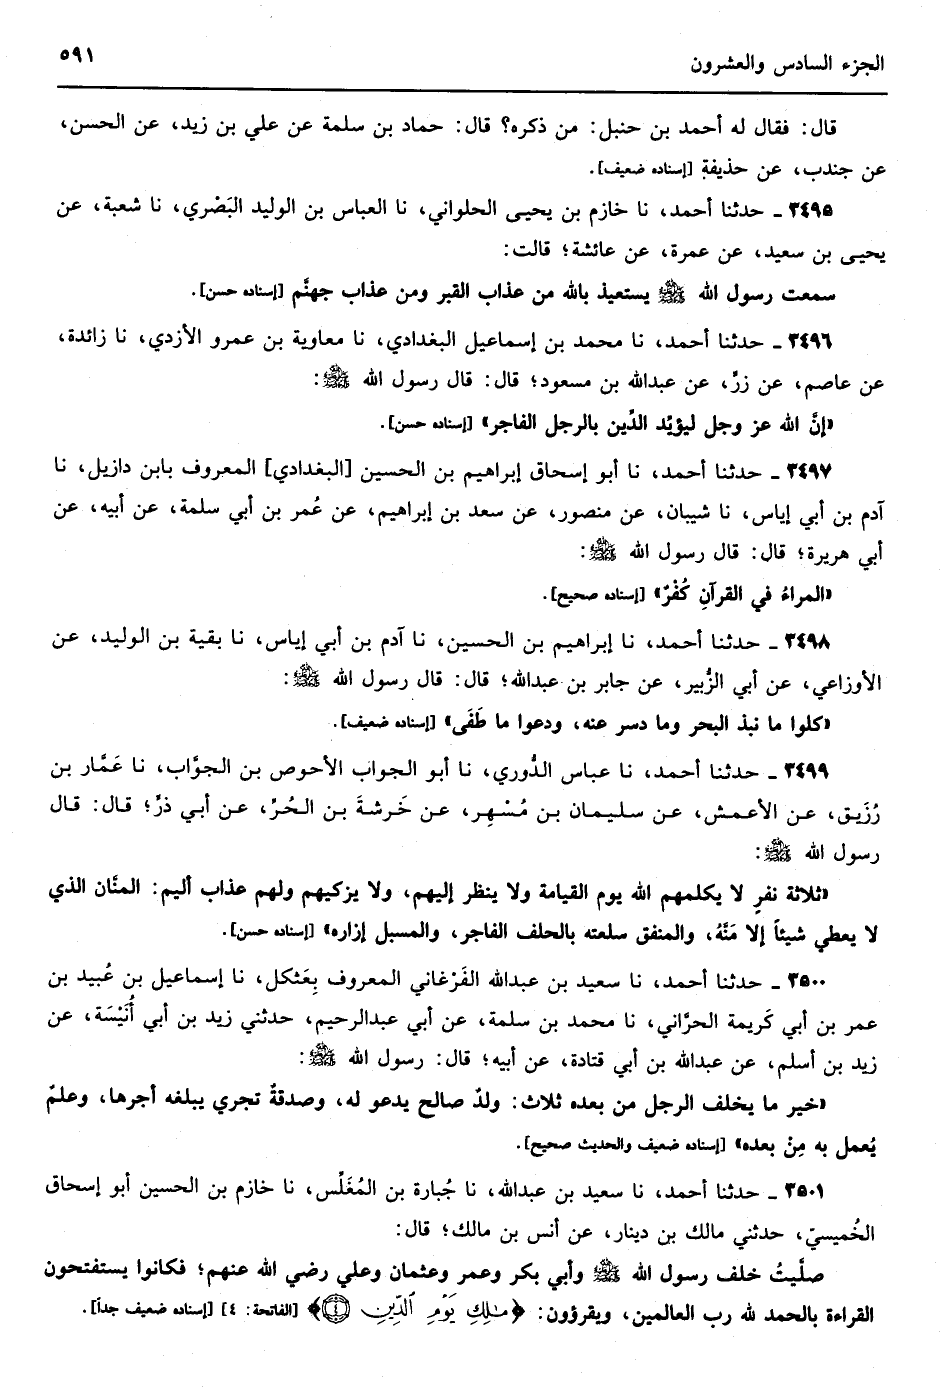 الجزء السادس والعشرون
٥٩١
قال: فقال له أحمد بن حنبل: من ذكره؟ قال: حماد بن سلمة عن علي بن زيد، عن الحسن،
عن جندب، عن حذيفةِ [إسناده ضعيف].
٣٤٩٥ ـ حدثنا أحمد، نا خازم بن يحيى الحلواني، نا العباس بن الوليد البَصْري، نا شعبة، عن
يحيى بن سعيد، عن عمرة، عن عائشة؛ قالت:
سمعت رسول الله ﷺ يستعيذ بالله من عذاب القبر ومن عذاب جهنَّم [إسناده حسن].
٣٤٩٦ ـ حدثنا أحمد، نا محمد بن إسماعيل البغدادي، نا معاوية بن عمرو الأزدي، نا زائدة،
عن عاصم، عن زرٍّ، عن عبدالله بن مسعود؛ قال: قال رسول الله ﷺ:
«إنَّ الله عز وجل ليؤيّد الدِّين بالرجل الفاجر» [إسناده حسن].
٣٤٩٧ ـ حدثنا أحمد، نا أبو إسحاق إبراهيم بن الحسين [البغدادي] المعروف بابن دازيل، نا
آدم بن أبي إياس، نا شيبان، عن منصور، عن سعد بن إبراهيم، عن عُمر بن أبي سلمة، عن أبيه، عن
أبي هريرة؛ قال: قال رسول الله ﷺ:
«المراءُ في القرآنِ كُفْرٌ» [إسناده صحيح].
٣٤٩٨ ـ حدثنا أحمد، نا إبراهيم بن الحسين، نا آدم بن أبي إياس، نا بقية بن الوليد، عن
الأوزاعي، عن أبي الزُّبير، عن جابر بن عبدالله؛ قال: قال رسول الله ﷺ:
«كلوا ما نبذ البحر وما دسر عنه، ودعوا ما طَفَى» [إسناده ضعيف].
٣٤٩٩ ـ حدثنا أحمد، نا عباس الدُّوري، نا أبو الجواب الأحوص بن الجوَّاب، نا عَمَّار بن
رُزَيق، عن الأعمش، عن سليمان بن مُسْهِر، عن خَرشةَ بن الحُرّ، عن أبي ذرٍّ؛ قال: قال
رسول الله ﷺ:
«ثلاثة نفرٍ لا يكلمهم الله يوم القيامة ولا ينظر إليهم، ولا يزكيهم ولهم عذاب أليم: المنَّان الذي
لا يعطي شيئاً إلا مَنَّهُ، والمنفق سلعته بالحلف الفاجر، والمسبل إزاره» [إسناده حسن].
٣٥٠٠ ـ حدثنا أحمد، نا سعيد بن عبدالله الفَرْغاني المعروف بِعَثكل، نا إسماعيل بن عُبيد بن
عمر بن أبي كَريمة الحرَّاني، نا محمد بن سلمة، عن أبي عبدالرحيم، حدثني زيد بن أبي أُنَيْسَة، عن
زيد بن أسلم، عن عبدالله بن أبي قتادة، عن أبيه؛ قال: رسول الله ﷺ:
«خير ما يخلف الرجل من بعده ثلاث: ولدٌ صالح يدعو له، وصدقةٌ تجري يبلغه أجرها، وعلمٌ
يُعمل به مِنْ بعده» [إسناده ضعيف والحديث صحيح].
٣٥٠١ ـ حدثنا أحمد، نا سعيد بن عبدالله، نا جُبارة بن المُغَلِّس، نا خازم بن الحسين أبو إسحاق
الخُميسيّ، حدثني مالك بن دينار، عن أنس بن مالك؛ قال:
صلَّيتُ خلف رسول الله ﷺ وأبي بكر وعمر وعثمان وعلي رضي الله عنهم؛ فكانوا يستفتحون
القراءة بالحمد لله رب العالمين، ويقرؤون: ﴿مَٰلِكِ يَوْمِ ٱلدِّينِ ٤﴾ [الفاتحة: ٤] [إسناده ضعيف جداً].